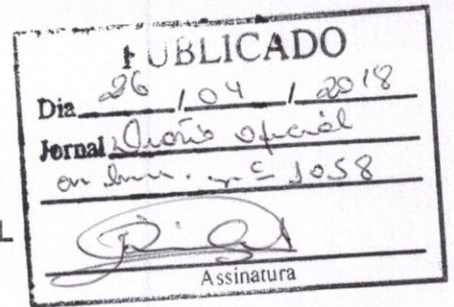 PUBLICADO
Dia 26 / 04 / 2018
Jornal Diário Oficial
on line. nº 1058
L
Assinatura